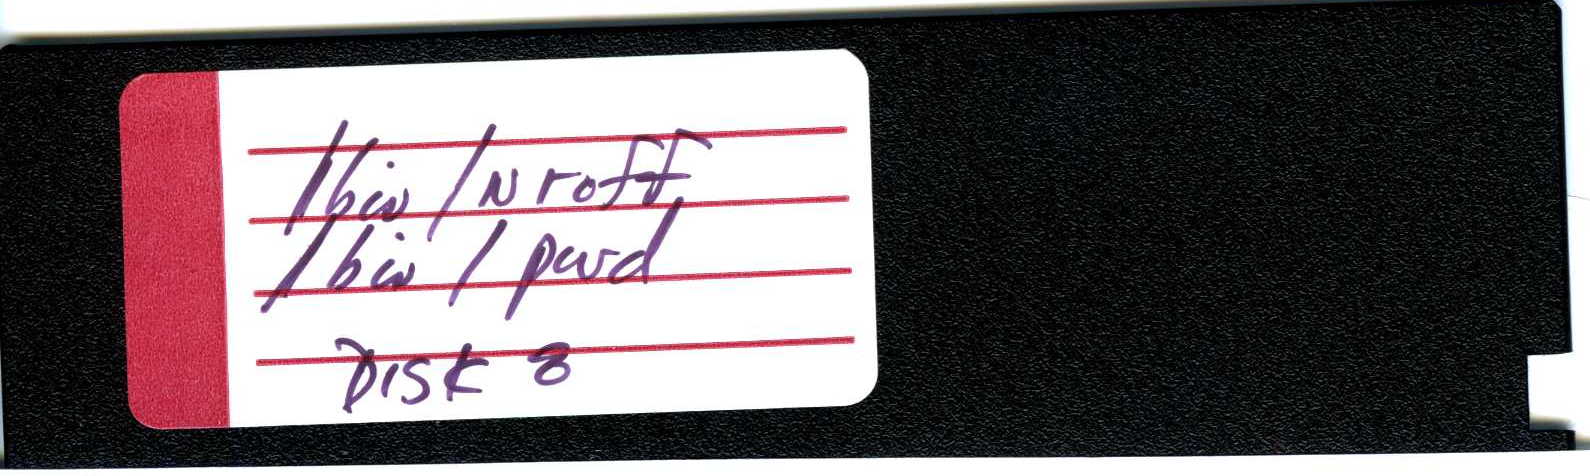 /bin/Nroff
/bin/pwd
DISK 8